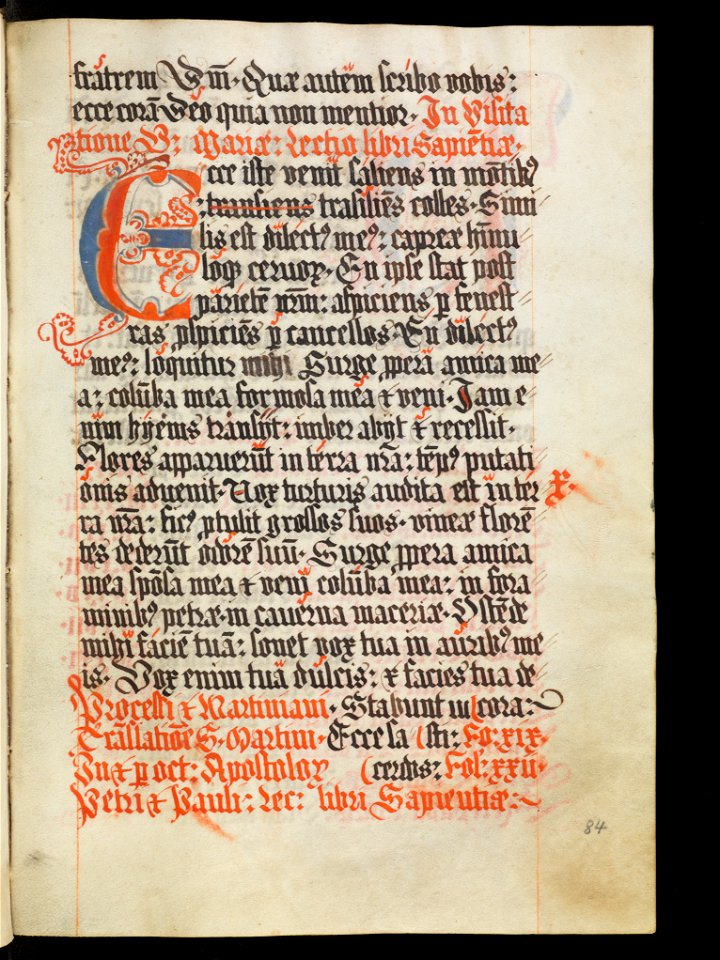 fratrem Dm̄. Quæ autem scribo vobis:
ecce corā Deo quia non mentior. In Visita
tione B: Mariæ: Lectio libri Sapiētiæ.
Ecce iste venit saliens in mōtibꝰ
: transiens trāsiliēs colles. Simi
lis est dilectꝰ meꝰ: capreæ hīnu
loqꝫ cervoꝝ. En ipse stat post
parietē nr̄m: aspiciens p̲ fenest
ras p̲spiciēs p̲ cancellos En dilectꝰ
meꝰ: loquitur mihi Surge p̲pera amica me
a: colūba mea formosa mea & veni. Jam e
nim hyems transijt: imber abijt & recessit.
Flores apparuerūt in terra nr̄a: tēpꝰ putati
onis advenit. Vox turturis audita est in ter
ra nr̄a: ficꝰ p̲tulit grossos suos. vineæ florē
tes dederūt odorē suū. Surge p̲pera amica
mea spōsa mea & veni colūba mea: in fora
minibꝰ petræ. in caverna maceriæ. Ostēde
mihi faciē tuā: sonet vox tua in auribꝰ me
is. Vox enim tua dulcis: & facies tua de
Processi & Martiniani. Stabunt iu (cora:
Trāslatiōe S. Martini. Ecce sa (sti: Fo: xix.
In & p̲ oct: Apostoloꝝ (cerdos: Fol: xxii.
Petri & Pauli: Lec: libri Sapientiæ:
84